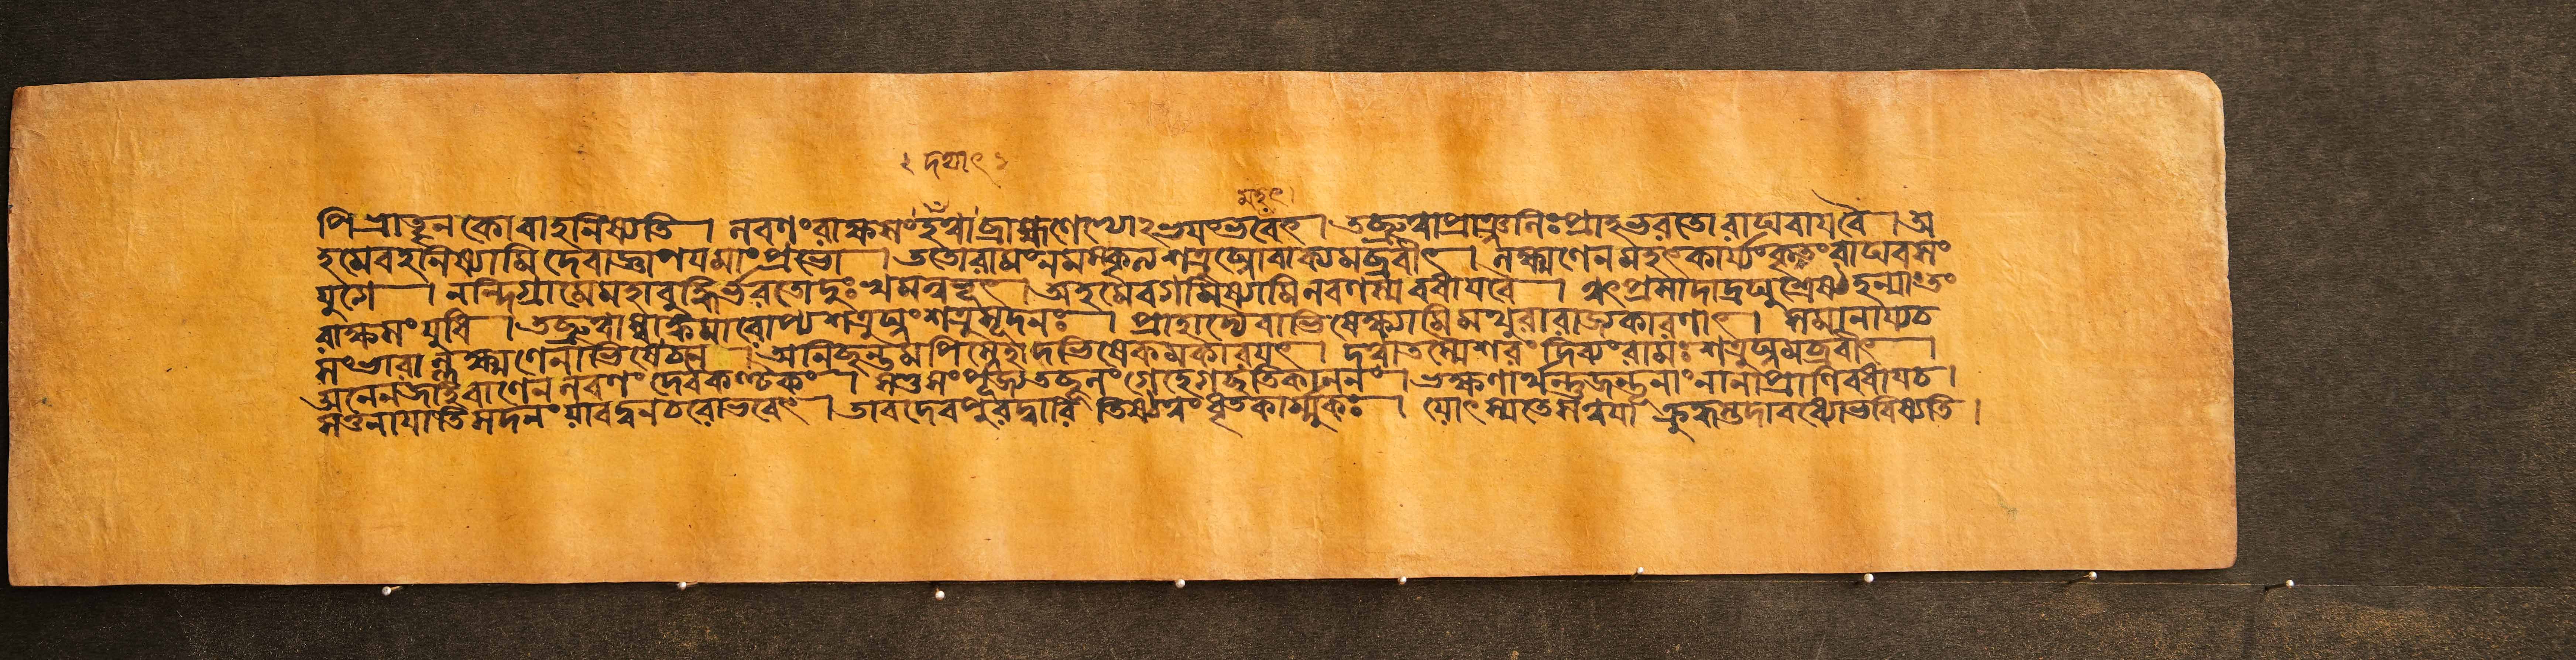 দদ্যাৎ
মহৎ।
পি ভ্রাতৄন কোবাহনিষ্যতি। লবণংরাক্ষসংহত্বাব্রাহ্মণেভ্যোঽভয়ংভবেৎ। তচ্ছ্রুত্বাপ্রাঞ্জলিঃপ্রাহভরতোরাঘবায়বৈ। অ
হমেবহনিষ্যামি দেবাজ্ঞাপয়মাংপ্রভো। ততোরামংনমস্কৃত্য শত্রুঘ্নোবাক্যমব্রবীৎ। লক্ষ্মণেনমহৎকার্য্যংকৃতংরাঘবসং
যুগে। নন্দিগ্রামেমহাবুদ্ধির্ভরতোদুঃখমন্বভূৎ। অহমেবগমিষ্যামিলবণস্যবধায়বৈ। ত্বৎপ্রসাদাদ্রঘুশ্রেষ্ঠহন্যাংতং
রাক্ষসংযুধি। তচ্ছ্রুত্বাস্বাঙ্কমারোপ্য শত্রুঘ্নংশত্রুসূদনঃ। প্রাহাদ্যৈবাভিষেক্ষ্যামিমথুরারাজ্যকারণাৎ। সমানায্যচ
সংভারান্লক্ষ্মণেনাভিষেচনে। অনিচ্ছন্তমপিস্নেহাদভিষেকমকারয়ৎ। দত্বাতস্মৈশরং দিব্যংরামঃ শত্রুঘ্নমব্রবীৎ।
অনেনজহি বাণেন লবণং দেবকণ্টকং। সতুসংপূজ্যতচ্ছূলং গেহেগচ্ছতিকাননং। ভক্ষণার্থন্তুজন্তূনাংনানাপ্রাণিবধায়চ।
সতুনায়াতিসদনং যাবদ্বনচরোভবেৎ। তাবদেবপুরদ্বারি তিষ্ঠত্বং ধৃতকার্ম্মুকঃ। যোৎস্যতেসত্বয়া ক্রুদ্ধস্তদাবধ্যোভবিষ্যতি।